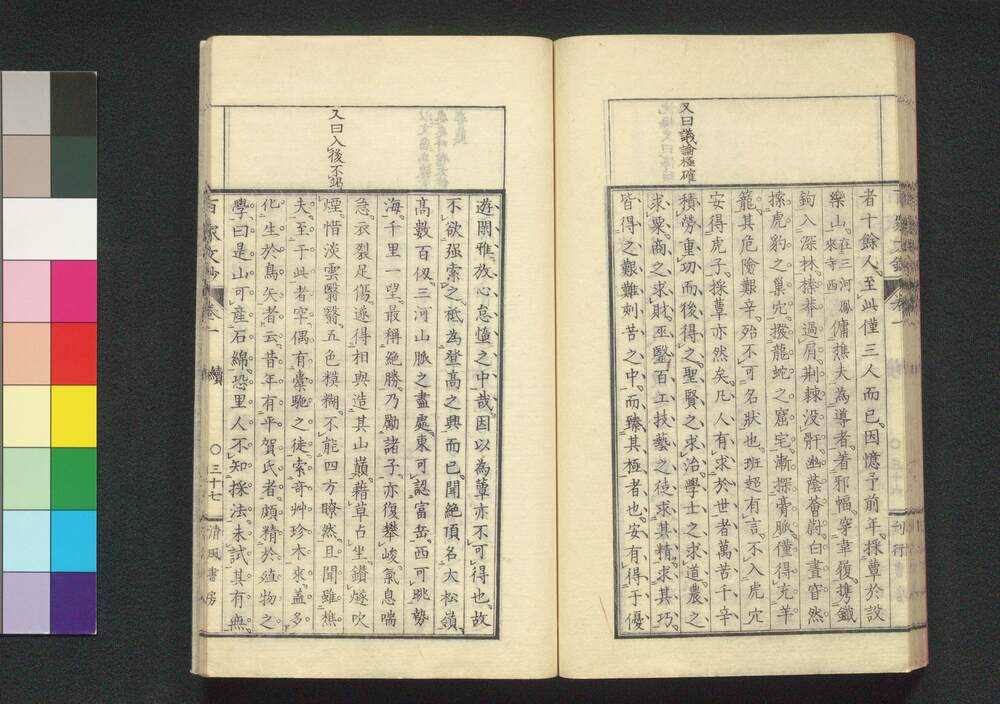 又曰議論極確
者十餘人至此僅三人而已因憶予前年採蕈於設
樂山在三河鳳來寺西傭樵夫為導者著邪幅穿草履携鐵
鉤入深林榛莽過肩荆棘沒骭幽蔭薈蔚白晝窅然
探虎豹之巢穴撥龍蛇之窟宅漸探膏脈僅得充羊
籠其危險艱辛殆不可名狀也班超有言不入虎穴
安得虎子採蕈亦然矣凡人有求於世者萬苦千辛
積勞重功而後得之聖賢之求治學士之求道農之
求粟商之求財巫醫百工技藝之徒求其精求其巧
皆得之艱難刻苦之中而臻其極者也安有得于優
又曰入後不竭
遊閑雅放心怠惰之中哉因以為蕈亦不可得也故
不欲强索之祗為登高之興而已聞絶頂名大松嶺
高數百仭三河山脈之盡處東可認富岳西可眺勢
海千里一望最稱絶勝乃勵諸子亦復攀峻氣息喘
急衣裂足傷遂得相與造其山巓藉草占坐鑽燧吹
煙惜淡雲翳翳五色糢糊不能四方瞭然且聞雖樵
夫至于此者罕偶有橐駞之徒索奇艸珍木來蓋多
化生於鳥矢者云昔年有平賀氏者頗精於殖物之
學曰是山可產石綿恐里人不知採法未試其有無
百家文鈔 卷一 續 〇三十七 清風書房
刊行